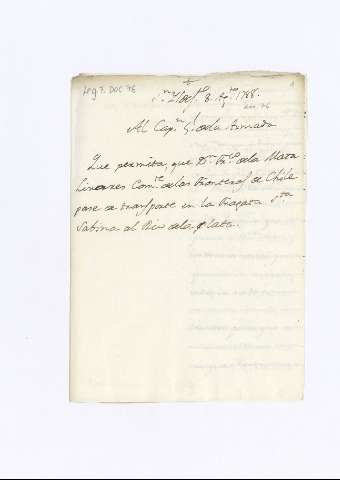 Leg 7. DOC 76
1
8. Ag.to 1788.
Al Cap.n G.l de la Armada
Que permita, que D.n Fr.co de la Mata
Linares Com.te de las Fronteras de Chile
pase de transporte en la Fragata S.ta
Sabina al Rio de la plata.